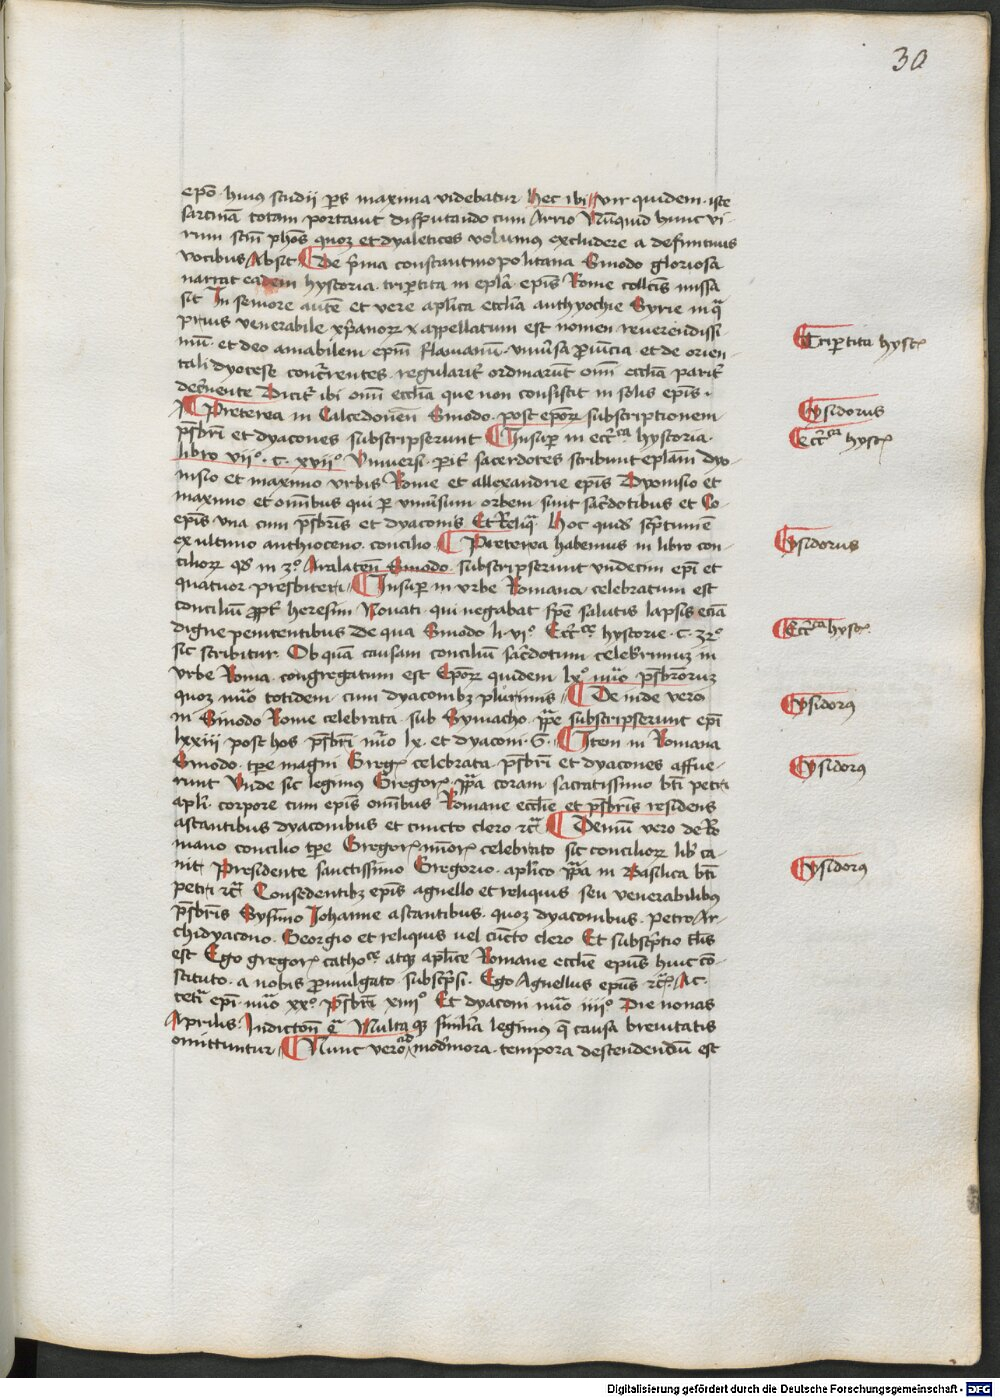 30
epō huius studii ps maxima videbatur hec ibi vir quidem iste
sarcinā totam portauit disputando cum Arrio Nūquid hunc vi-
rum sctū phōs quoz et dyaleticos volumus excludere a definitiuis
vocibus Absit De pma constantinopolitana Sinodo gloriosa
narrat eadem hystoria tripertita in epla epis Rome collectis missa
sit In seniore autē et vere aplica ecclia anthyochie Syrie in q
prius venerabile xpianorz appellatum est nomen reuerendissi
mū et deo amabilem epm flauianū vniusa puincia et de orien-
tali dyocese concurrentes regularit ordinarūt omi ecclia parit
decnente Dicit ibi omi ecclia que non consistit in solis epis
Preterea in Calcedonen Sinodo post eporz subscriptionem
psbri et dyacones subscripserunt Insup in ecctca hystoria
libro vii° c xvii° Vniuersi pit sacerdotes scribunt eplam dyo-
nisio et maximo vrbis Rome et allexandrie epis Dyonisio et
maximo et omibus qui p vniusum orbem sunt sacdotibus et Co
epis vna cum psbris et dyaconis Et reliq Hoc quid sptum ē
ex ultimo anthioceno concilio Preterea habemus in libro con-
ciliorz qd in 3° Aralaten Sinodo subscripserunt vndecim epi et
quatuor presbiteri Insup in vrbe Romana celebratum est
conciliū ppt heresim Nouati qui negabat spē salutis lapsis eciā
digne penitentibus De qua Sinodo li vi° Ecctce hystorie c 32°
sic scribitur Ob quā causam conciliū sacdotum celeberrimuz in
vrbe Roma congregatum est Eporz quidem lx° nuo psbroruz
quoz nuo totidem cum dyaconibz plurimis De inde vero
in Sinodo Rome celebrata sub Symacho ppe subscripserunt epi
lxxiii post hos psbri nuo lx et dyaconi 6 Item in Romana
Sinodo tpe magni Gregr celebrata psbri et dyacones affue-
runt Vnde sic legimus Gregor ppa coram sacratissimo bti petri
apli corpore cum epis omibus Romane ecclie et psbris residens
astantibus dyaconibus et cuncto clero rc Demū vero de Ro
mano concilio tpe Gregor iunior celebrato sic conciliorz lib ca-
nit Presidente sanctissimo Gregorio aplico ppa in Basilica bti
petri rc Consedentibz epis agnello et reliquis seu venerabilibus
psbris Sysinio Johanne astantibus quoz dyaconibus petro Ar-
chidyacono Georgio et reliquis uel cūcto clero Et subsptio tlis
est Ego gregor cathoce atqz aplice Romane ecclie epus huic cō-
stituto a nobis pmulgato subscpsi Ego Agnellus epus rc Ac
ceti epi nuo xx° Psbri xiiii° Et dyaconi nuo iiii° Die nonas
Aprilis Indiction q Multa qz similia legimus q causa breuitatis
omittuntur Nunc vero ad modniora tempora descendendū est
Tripertita hyst
Ysidorus
Ecctca hyst
Ysidorus
Ecctca hyst
Ysidorus
Ysidorus
Ysidorus
Digitalisierung gefördert durch die Deutsche Forschungsgemeinschaft - DFG